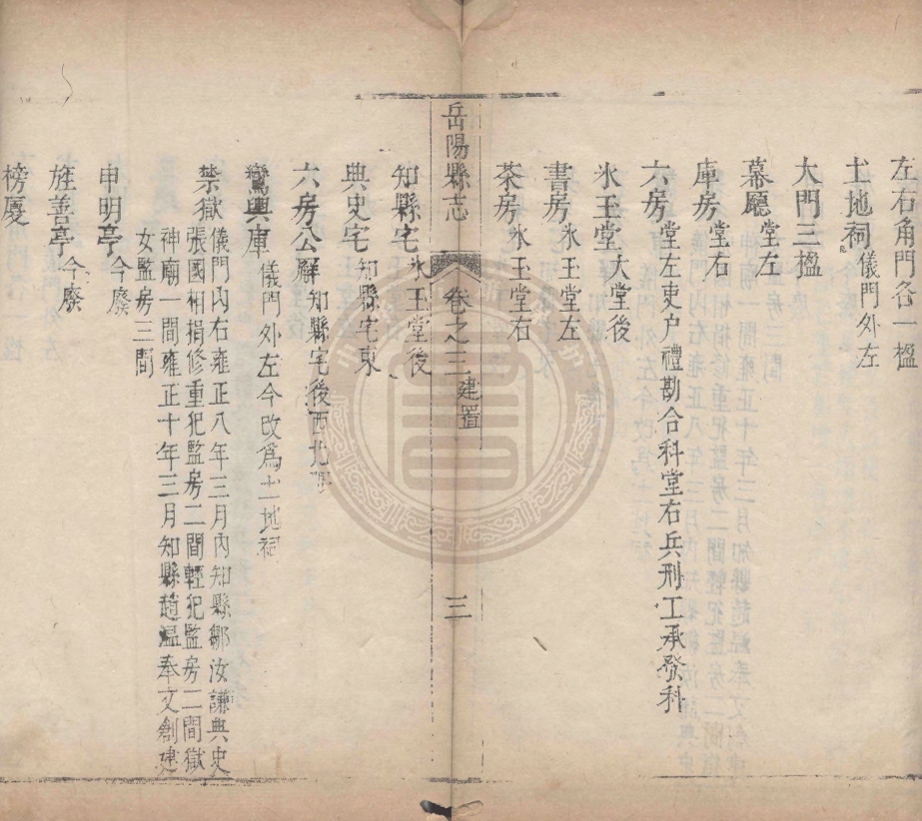 左右角門各一楹
土地祠儀門外左
大門三楹
幕廳堂左
庫房堂右
六房堂左吏户禮勘合科堂右兵刑工承發科
氷玉堂大堂後
書房氷玉堂左
茶房氷玉堂右
岳陽縣志 卷之三 建置 三
知縣宅氷玉堂後
典史宅知縣宅東
六房公廨知縣宅後西北隅
鸞輿庫儀門外左今改爲土地祠
禁獄儀門內右雍正八年三月內知縣鄒汝謙典史
張國相捐修重犯監房二間輕犯監房二間獄
神廟一間雍正十年三月知縣趙溫奉文創建
女監房三間
申明亭今廢
旌善亭今廢
榜廈